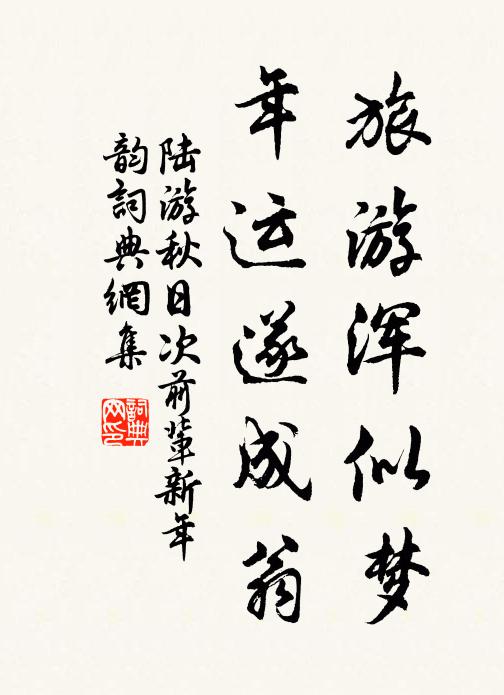 旅游浑似梦
年运遂成翁
陆游秋日次前辈新年
韵詞典網集
詞典网印